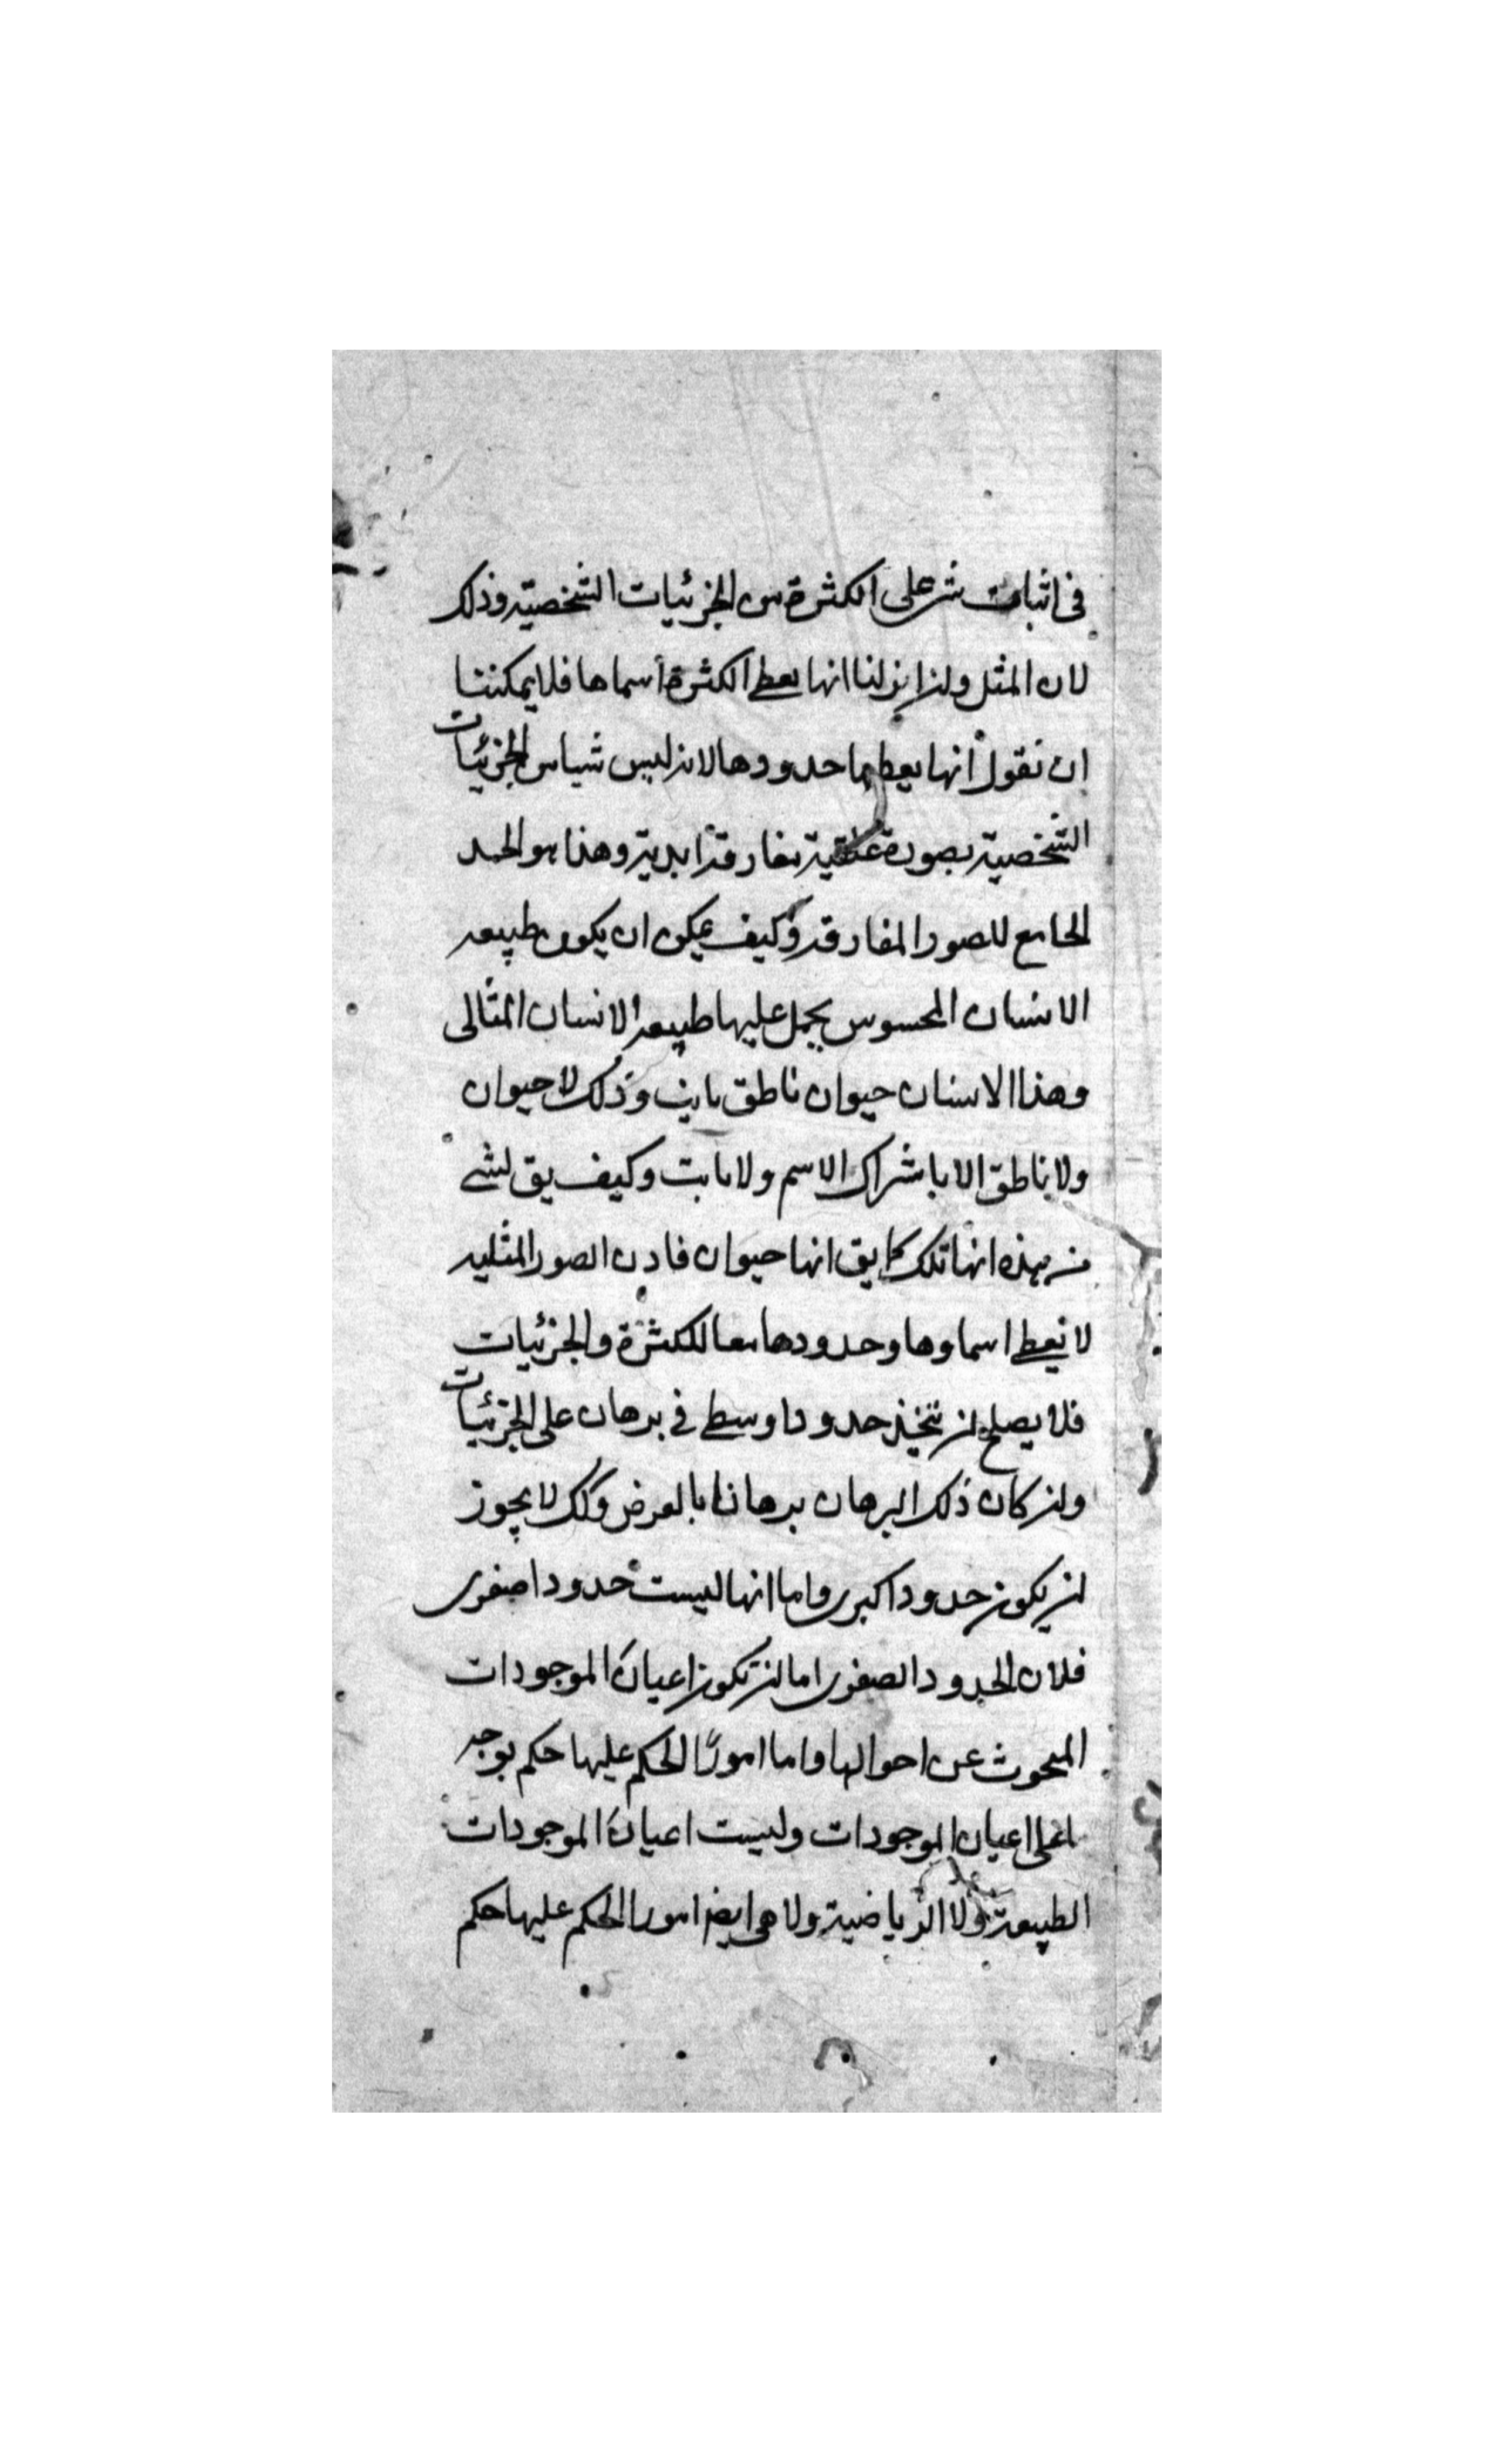 في اثبات شر على الكثرة من الجزئيات الشخصية وذلك
لان المثل ولن انزلنا انها يعطى الكثرة أسماها فلا يمكننا
ان نقول انها يعطيها حدودها لانه ليس شيا من الجزئيات
الشخصية بصورة عقلية مفارقة ابدية وهذا هو الحد
الجامع للصور المفارقة وكيف يمكن ان يكون طبيعه
الانسان المحسوس يحمل عليها طبيعه الانسان المثالى
وهذا الانسان حيوان ناطق مايت وذلك لا حيوان
ولا ناطق الا باشراك الاسم ولا مايت وكيف يق لشے
من هذه انها تلك كا يق انها حيوان فاذن الصور المثليه
لا تعطى اسماوها وحدودها معا للكثرة والجزئيات
فلا يصلح لن تتخذ حدودا وسطى في برهان على الجزئيات
ولن كان ذلك البرهان برهانا بالعرض وكك لا يجوز
لن يكون حدودا كبرى واما انها ليست حدودا صغرى
فلان الحدود الصغرى اما لن تكون اعيان الموجودات
المبحوث عن احوالها واما امورًا الحكم عليها حكم بوجه
ما على اعيان الموجودات وليست اعيان الموجودات
الطبيعة ولا الرياضية ولا هى ايض امورا الحكم عليها حكم